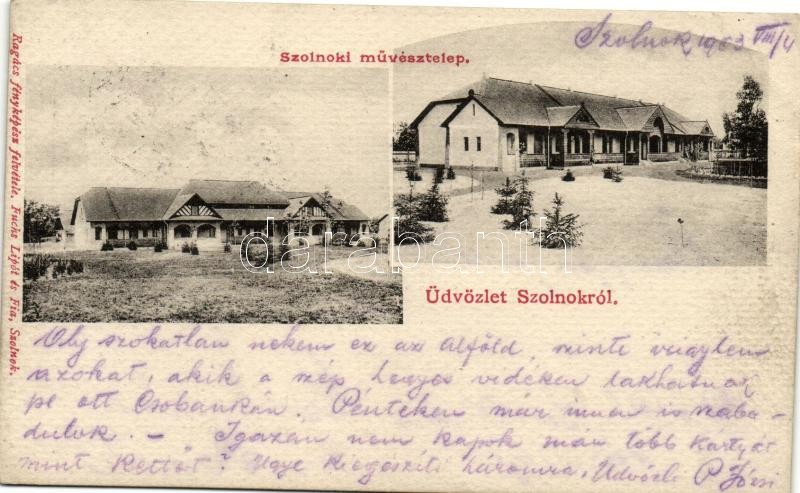 Szolnoki művésztelep.
Szolnok 1903 VIII/4
Ragács fényképész felvétele. Fuchs Lipót és Fia, Szolnok.
darabanth
Üdvözlet Szolnokról.
Oly szokatlan nekem ez az alföld, szinte irigylem
azokat, akik a szép hegyes vidéken lakhatnak
pl ott Csobánkán. Pénteken már innen is szaba-
dulok. – Igazán nem kapok már több kártyát
mint kettőt? Ugye kiegészíti háromra. Üdvözli P Józsi